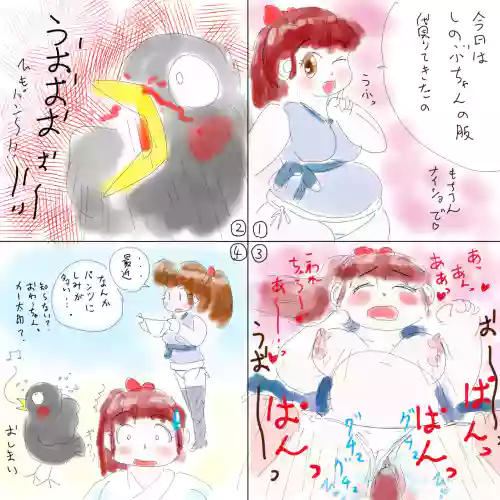 今日は
しのぶちゃんの服
借りてきたの
うふっ
もちろん
ナイショで♡
①
うおおおぉ〜
ひもパンくん
②
③
あ〜ん
あぁっ
こわれ
ちゃうー
あー!
うおー
ぱんっ
ぱんっ
ぱんっ
グチュ
グチュ
④
最近…
なんか
パンツに
しみが
多い…。
知らない?
おわーちゃん、
カー太郎?
おしまい